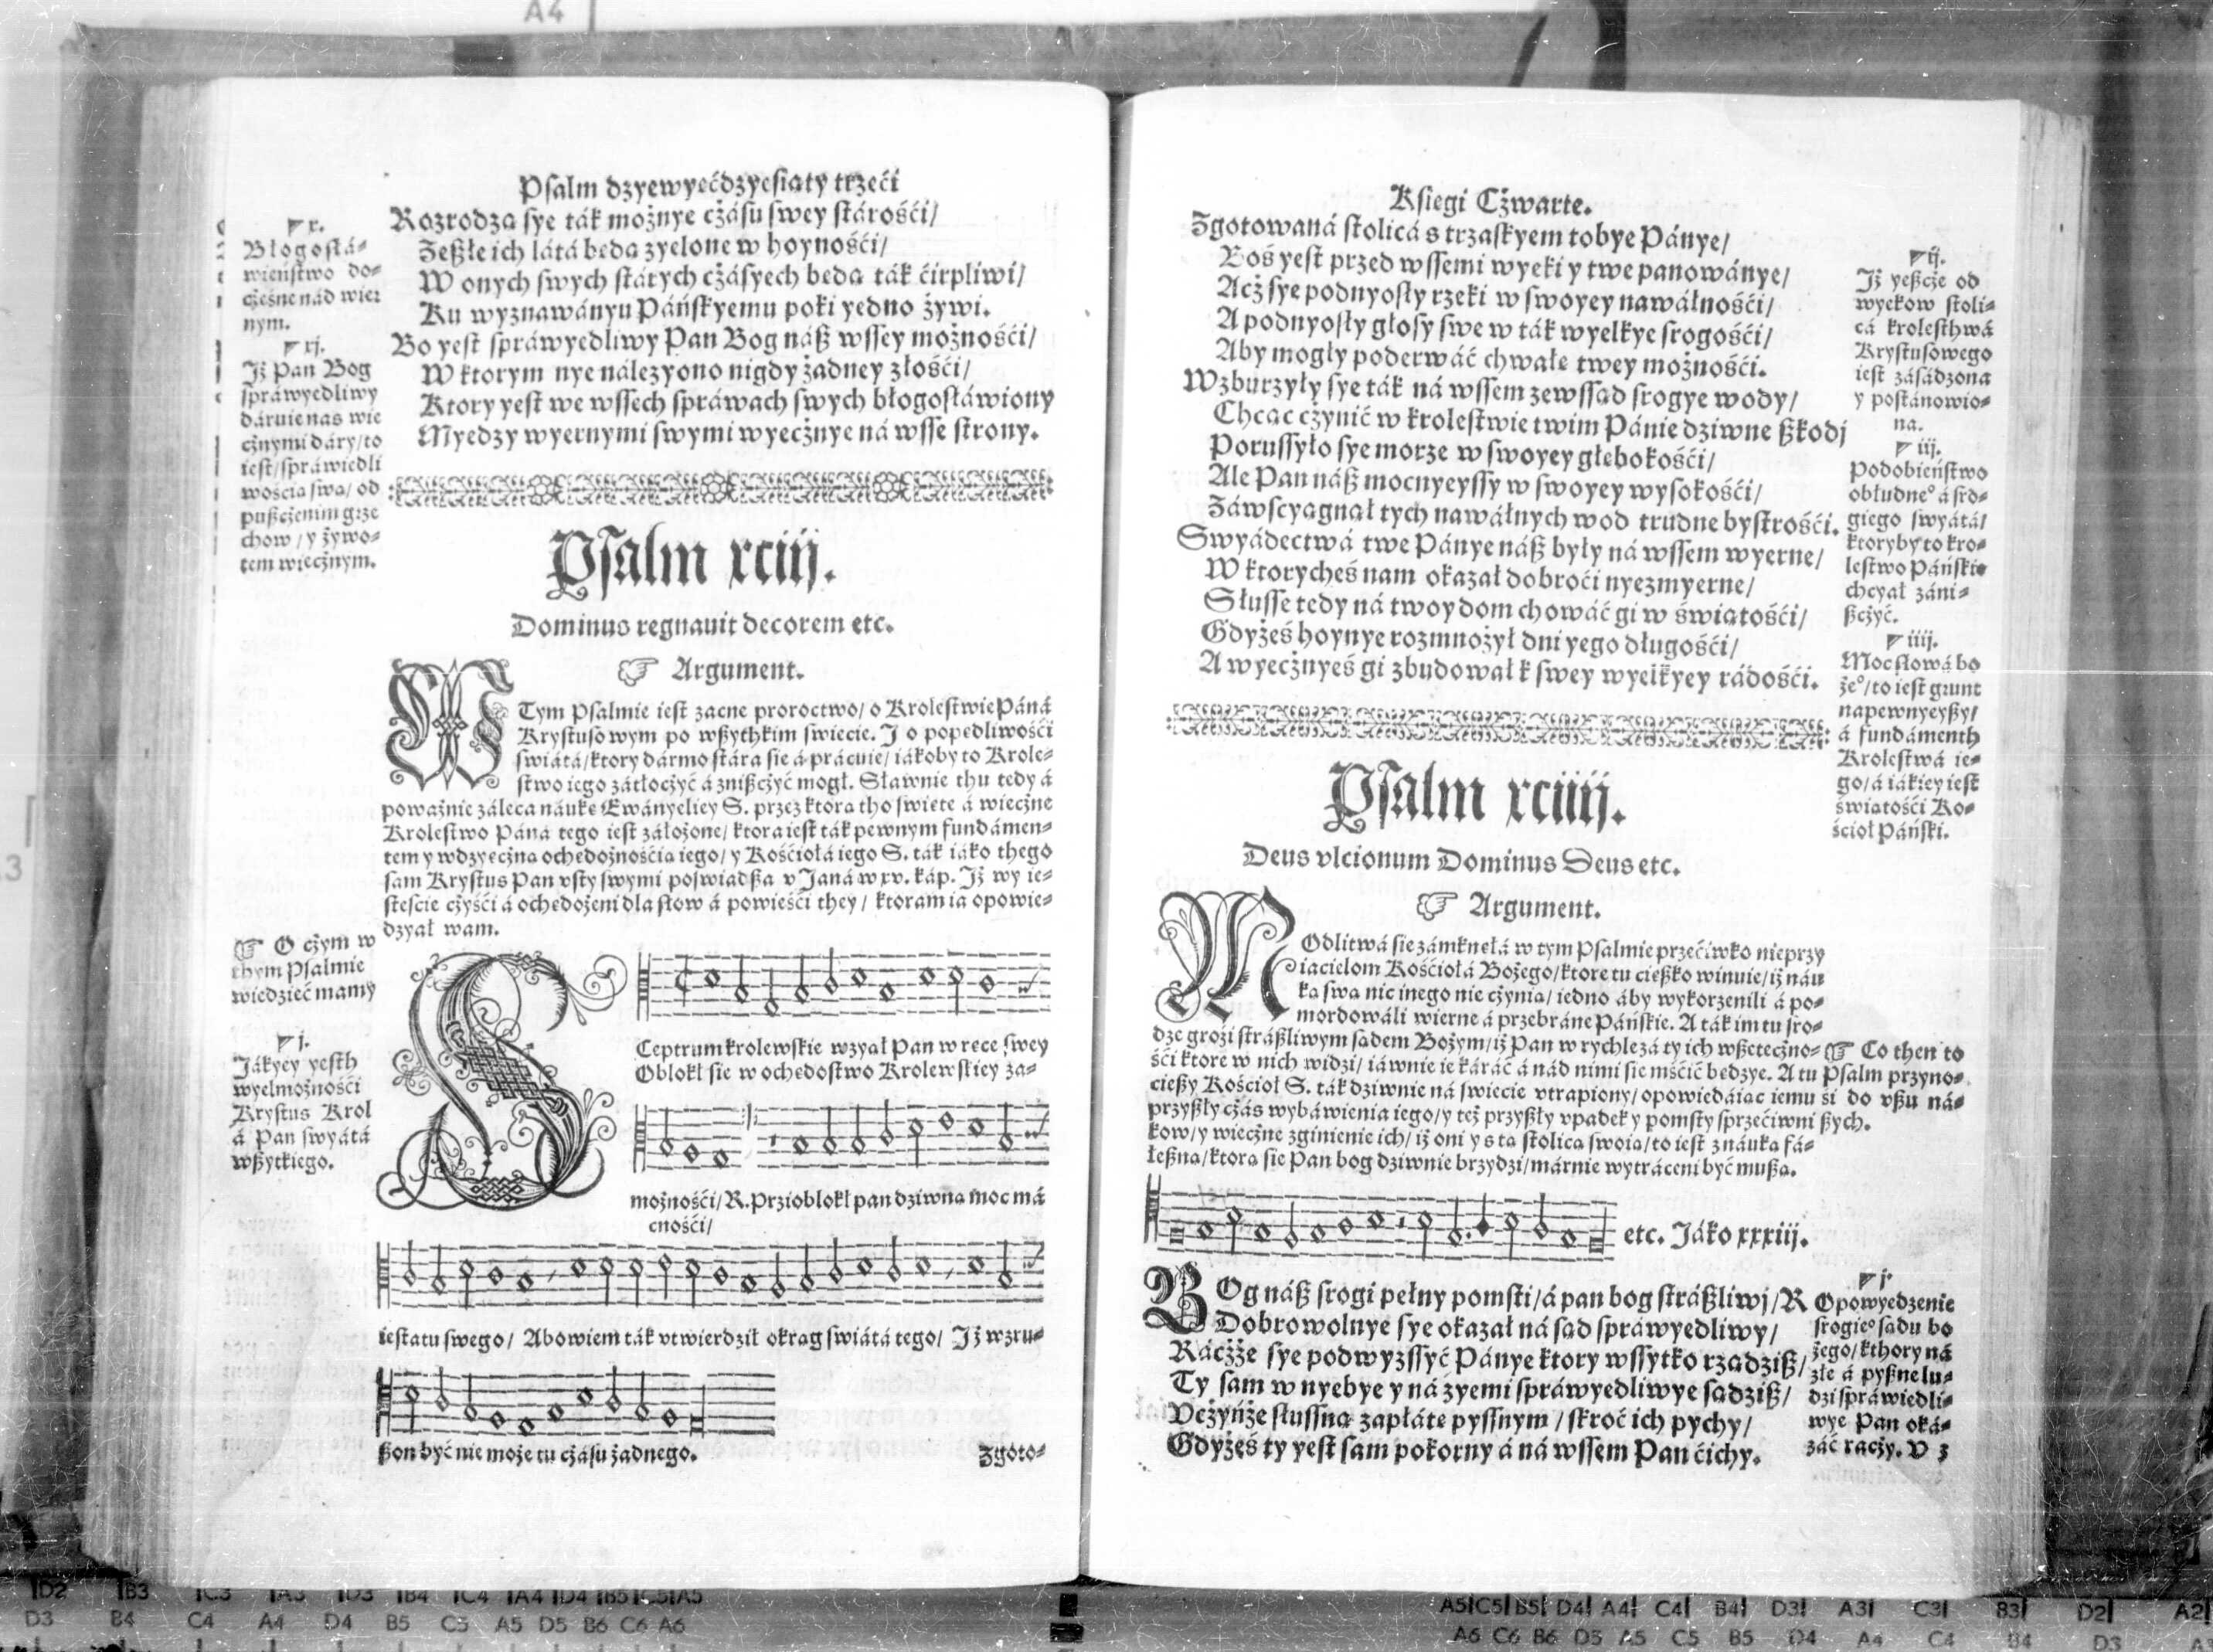 A4
Psalm dzyewyećdzyesiąty trzeći
▼ x.
Błogosłá-
wieństwo do-
cżesne nád wier
nym.
▼ xj.
Jż Pan Bog
spráwyedliwy
dáruie nas wie
cżnymi dáry/to
iest/spráwiedli
wośćią swą/ od
pußcżenim grze
chow/ y żywo-
tem wiecżnym.
Rozrodzą sye ták możnye cżásu swey stárośći/
Zeßłe ich látá będą zyelone w hoynośći/
W onych swych stárych cżásyech będą ták ćirpliwi/
Ku wyznawányu Páńskyemu poki yedno żywi.
Bo yest spráwyedliwy Pan Bog náß wssey możnośći/
W ktorym nye nálezyono nigdy żadney złośći/
Ktory yest we wssech spráwach swych błogosłáwiony
Myedzy wyernymi swymi wyecżnye ná wsse strony.
Psalm xciij.
Dominus regnauit decorem etc.
☞ Argument.
W Tym Psalmie iest zacne proroctwo/ o Krolestwie Páná
Krystusowym po wßythkim swiecie. J o popędliwośći
świátá/ktory dármo stára się á prácuie/ iákoby to Krole-
stwo iego zátłocżyć á znißcżyć mogł. Sławnie thu tedy á
poważnie záleca náukę Ewányeliey S. przez ktorą tho swięte á wiecżne
Krolestwo Páná tego iest záłożone/ ktora iest ták pewnym fundámen-
tem y wdzyecżną ochędożnośćią iego/ y Kośćiołá iego S. ták iáko thego
sam Krystus Pan vsty swymi poswiadßa v Janá w xv. káp. Jż wy ie-
stescie cżyśći á ochędożeni dla słow á powieśći they/ ktoram ia opowie-
dzyał wam.
☞ O cżym w
thym Psalmie
wiedzieć mamy
▼ j.
Jákyey yesth
wyelmożnośći
Krystus Krol
á Pan swyátá
wßytkiego.
SCeptrum krolewskie wzyął Pan w ręce swey
Oblokł się w ochędostwo Krolewskiey za-
możnośći/ R. Przioblokł pan dziwną moc má
cnośći/
iestatu swego/ Abowiem ták vtwierdził okrąg swiátá tego/ Jż wzru-
ßon być nie może tu cżásu żadnego.
Zgoto-
Księgi Cżwarte.
Zgotowaná stolicá s trzaskyem tobye Pánye/
Boś yest przed wssemi wyeki y twe panowánye/
Acż sye podnyosły rzeki w swoyey nawálnośći/
A podnyosły głosy swe w ták wyelkye srogośći/
Aby mogły poderwáć chwałę twey możnośći.
Wzburzyły sye ták ná wssem zewssąd srogye wody/
Chcąc cżynić w krolestwie twim Pánie dziwne ßkodj
Porussyło sye morze w swoyey głębokośći/
Ale Pan náß mocnyeyssy w swoyey wysokośći/
Záwscyągnął tych nawáłnych wod trudne bystrośći.
Swyádectwá twe Pánye náß były ná wssem wyerne/
W ktorycheś nam okazał dobroći nyezmyerne/
Słusse tedy ná twoy dom chowáć gi w świątośći/
Gdyżeś hoynye rozmnożył dni yego długośći/
A wyecżnyeś gi zbudował k swey wyelkyey rádośći.
▼ ij.
Jż yeßcże od
wyekow stoli-
cá krolesthwá
Krystusowego
iest zásádzona
y postánowio-
na.
▼ iij.
Podobieństwo
obłudneº á sro-
giego swyátá/
ktoryby to kro-
lestwo Páńskie
chcyał záni-
ßcżyć.
▼ iiij.
Moc słowá bo
żeº/ to iest grunt
napewnyeyßy/
á fundámenth
Krolestwá ie-
go/á iákiey iest
świątośći Ko-
śćioł Páński.
Psalm xciiij.
Deus vlcionum Dominus Deus etc.
☞ Argument.
MOdlitwá się zámknęłá w tym Psalmie przećiwko nieprzy
iacielom Kośćiołá Bożego/ktore tu cießko winuie/iż náu
ką swą nic inego nie cżynią/ iedno áby wykorzenili á po-
mordowáli wierne á przebráne Páńskie. A ták im tu sro-
dze grozi stráßliwym sądem Bożym/iż Pan w rychle zá ty ich wßetecżno-
śći ktore w nich widzi/ iáwnie ie káráć á nád nimi się mśćić będzye. A tu
cießy Kośćioł S. ták dziwnie ná swiecie vtrapiony/ opowiedáiąc iemu
przyßły cżás wybáwienia iego/y też przyßły vpadek y pomsty sprzećiwni
kow/y wiecżne zginienie ich/ iż oni y s tą stolicą swoią/to iest z náuką fá-
łeßną/ktorą się Pan bog dziwnie brzydzi/márnie wytráceni być mußą.
☞ Co then to
Psalm przyno-
śi do vßu ná-
ßych.
etc. Jáko xxxiij.
BOg náß srogi pełny pomsti/á pan bog stráßliwj/R
Dobrowolnye sye okazał ná sąd spráwyedliwy/
Rácżże sye podwyzssyć Pánye ktory wssytko rządziß/
Ty sam w nyebye y ná zyemi spráwyedliwye sądziß/
Vcżyńże słussną zapłátę pyssnym/ skroć ich pychy/
Gdyżeś ty yest sam pokorny á ná wssem Pan ćichy.
▼ j.
Opowyedzenie
srogieº sądu bo
żego/kthory ná
złe á pyßne lu-
dzi spráwiedli-
wye Pan oká-
záć racży. V 3